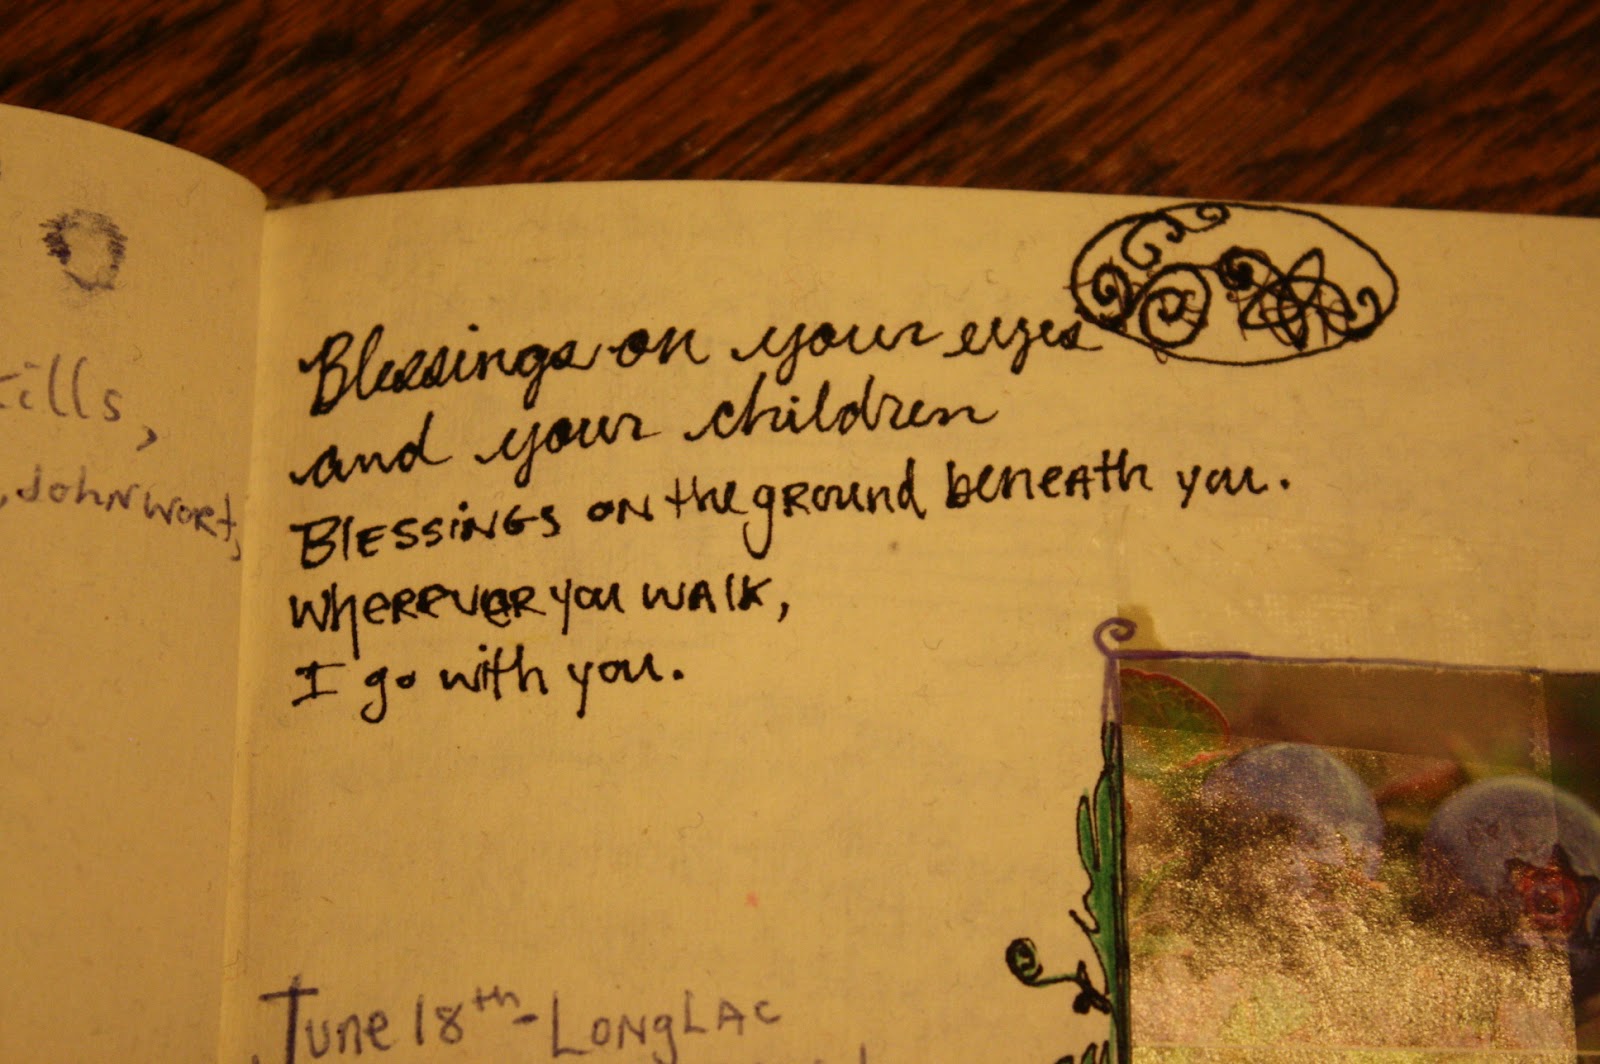 Blessings on your eyes
and your children
Blessings on the ground beneath you.
wherever you walk,
I go with you.
June 18th - LongLac
Johnwort,